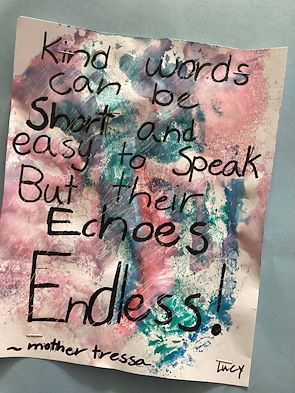 Kind words
can be
Short and
easy to Speak
But their
Echoes
Endless!
~ mother tressa
Lucy